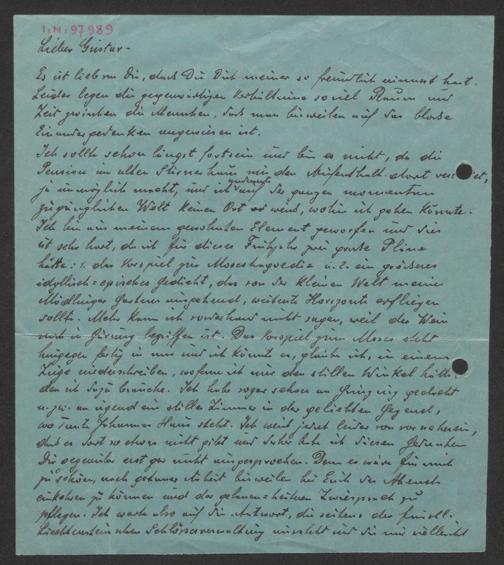 I.N. 97989
Lieber Gustav -
Es ist lieb von Dir, dass Du Dich meiner so freundlich erinnert hast.
Leider legen die gegenwärtigen Verhältnisse soviel Raum und
Zeit zwischen die Menschen, dass man bisweilen auf das blosse
Einandergedenken angewiesen ist.
Ich sollte schon längst fort sein und bin es nicht, da die
Pension am alten mir den Aufenthalt dort
ja unmöglich macht, und ich auf der ganzen momentan
zugänglichen Welt keinen Ort weiss, wohin ich gehen könnte.
Ich bin aus meinem gewohnten Element geworfen und dies
ist sehr hart, da ich für dieses Frühjahr zwei grosse Pläne
hatte: 1. das Vorspiel zur Mosestragoedie u. 2. ein grösseres
idyllisch-episches Gedicht, das von der kleinen Welt meines
Mödlinger Gartens ausgehend, weiteste Horizonte
sollte. Mehr kann ich vorderhand nicht sagen, weil der Wein
noch in Gärung begriffen ist. Das Vorspiel zum Moses steht
hingegen fertig in mir und ich könnte es, glaube ich, in einem
Zuge niederschreiben, wofern ich nur den stillen Winkel hätte,
den ich dazu brauche. Ich habe sogar schon an Grinzing gedacht
u. zw. an irgend ein stilles Zimmer in der geliebten Gegend,
wo Haus steht. Ich weiss jedoch leider von vorneherein,
dass es dort so etwas nicht gibt und daher habe ich diesen Gedanken
Dir gegenüber erst gar nicht ausgesprochen. Denn es wäre für mich
zu schön, nach getaner Arbeit bisweilen bei Euch des Abends
einkehren zu können und das Zwiegespräch zu
pflegen. Ich warte also auf die Antwort, die seitens der fürstl.
Liechtensteinschen Schlösserverwaltung und die mir vielleicht